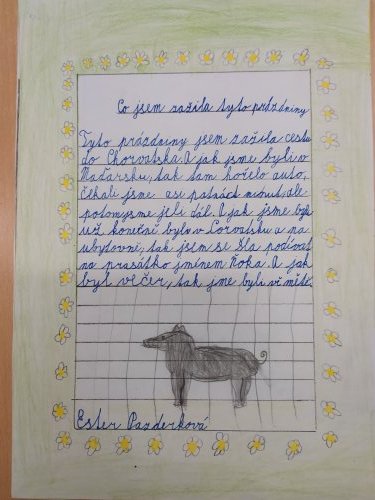 Co jsem zažila tyto prázdniny
Tyto prázdniny jsem zažila cestu
do Chorvatska. A jak jsme byli v
Maďarsku, tak tam hořelo auto,
čekali jsme asi patnáct minut, ale
potom jsme jeli dál. A jak jsme byli
už konečně byli v Corvatsku a na
ubytovně, tak jsem se šla podívat
na prasátko jménem Roka. A jak
byl večer, tak jme byli v městě.
Ester Pazderková